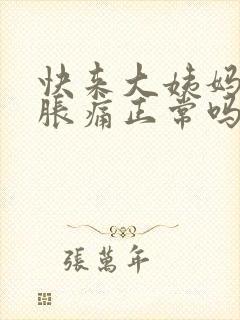 快来大姨妈
脹痛正常吗
張萬年